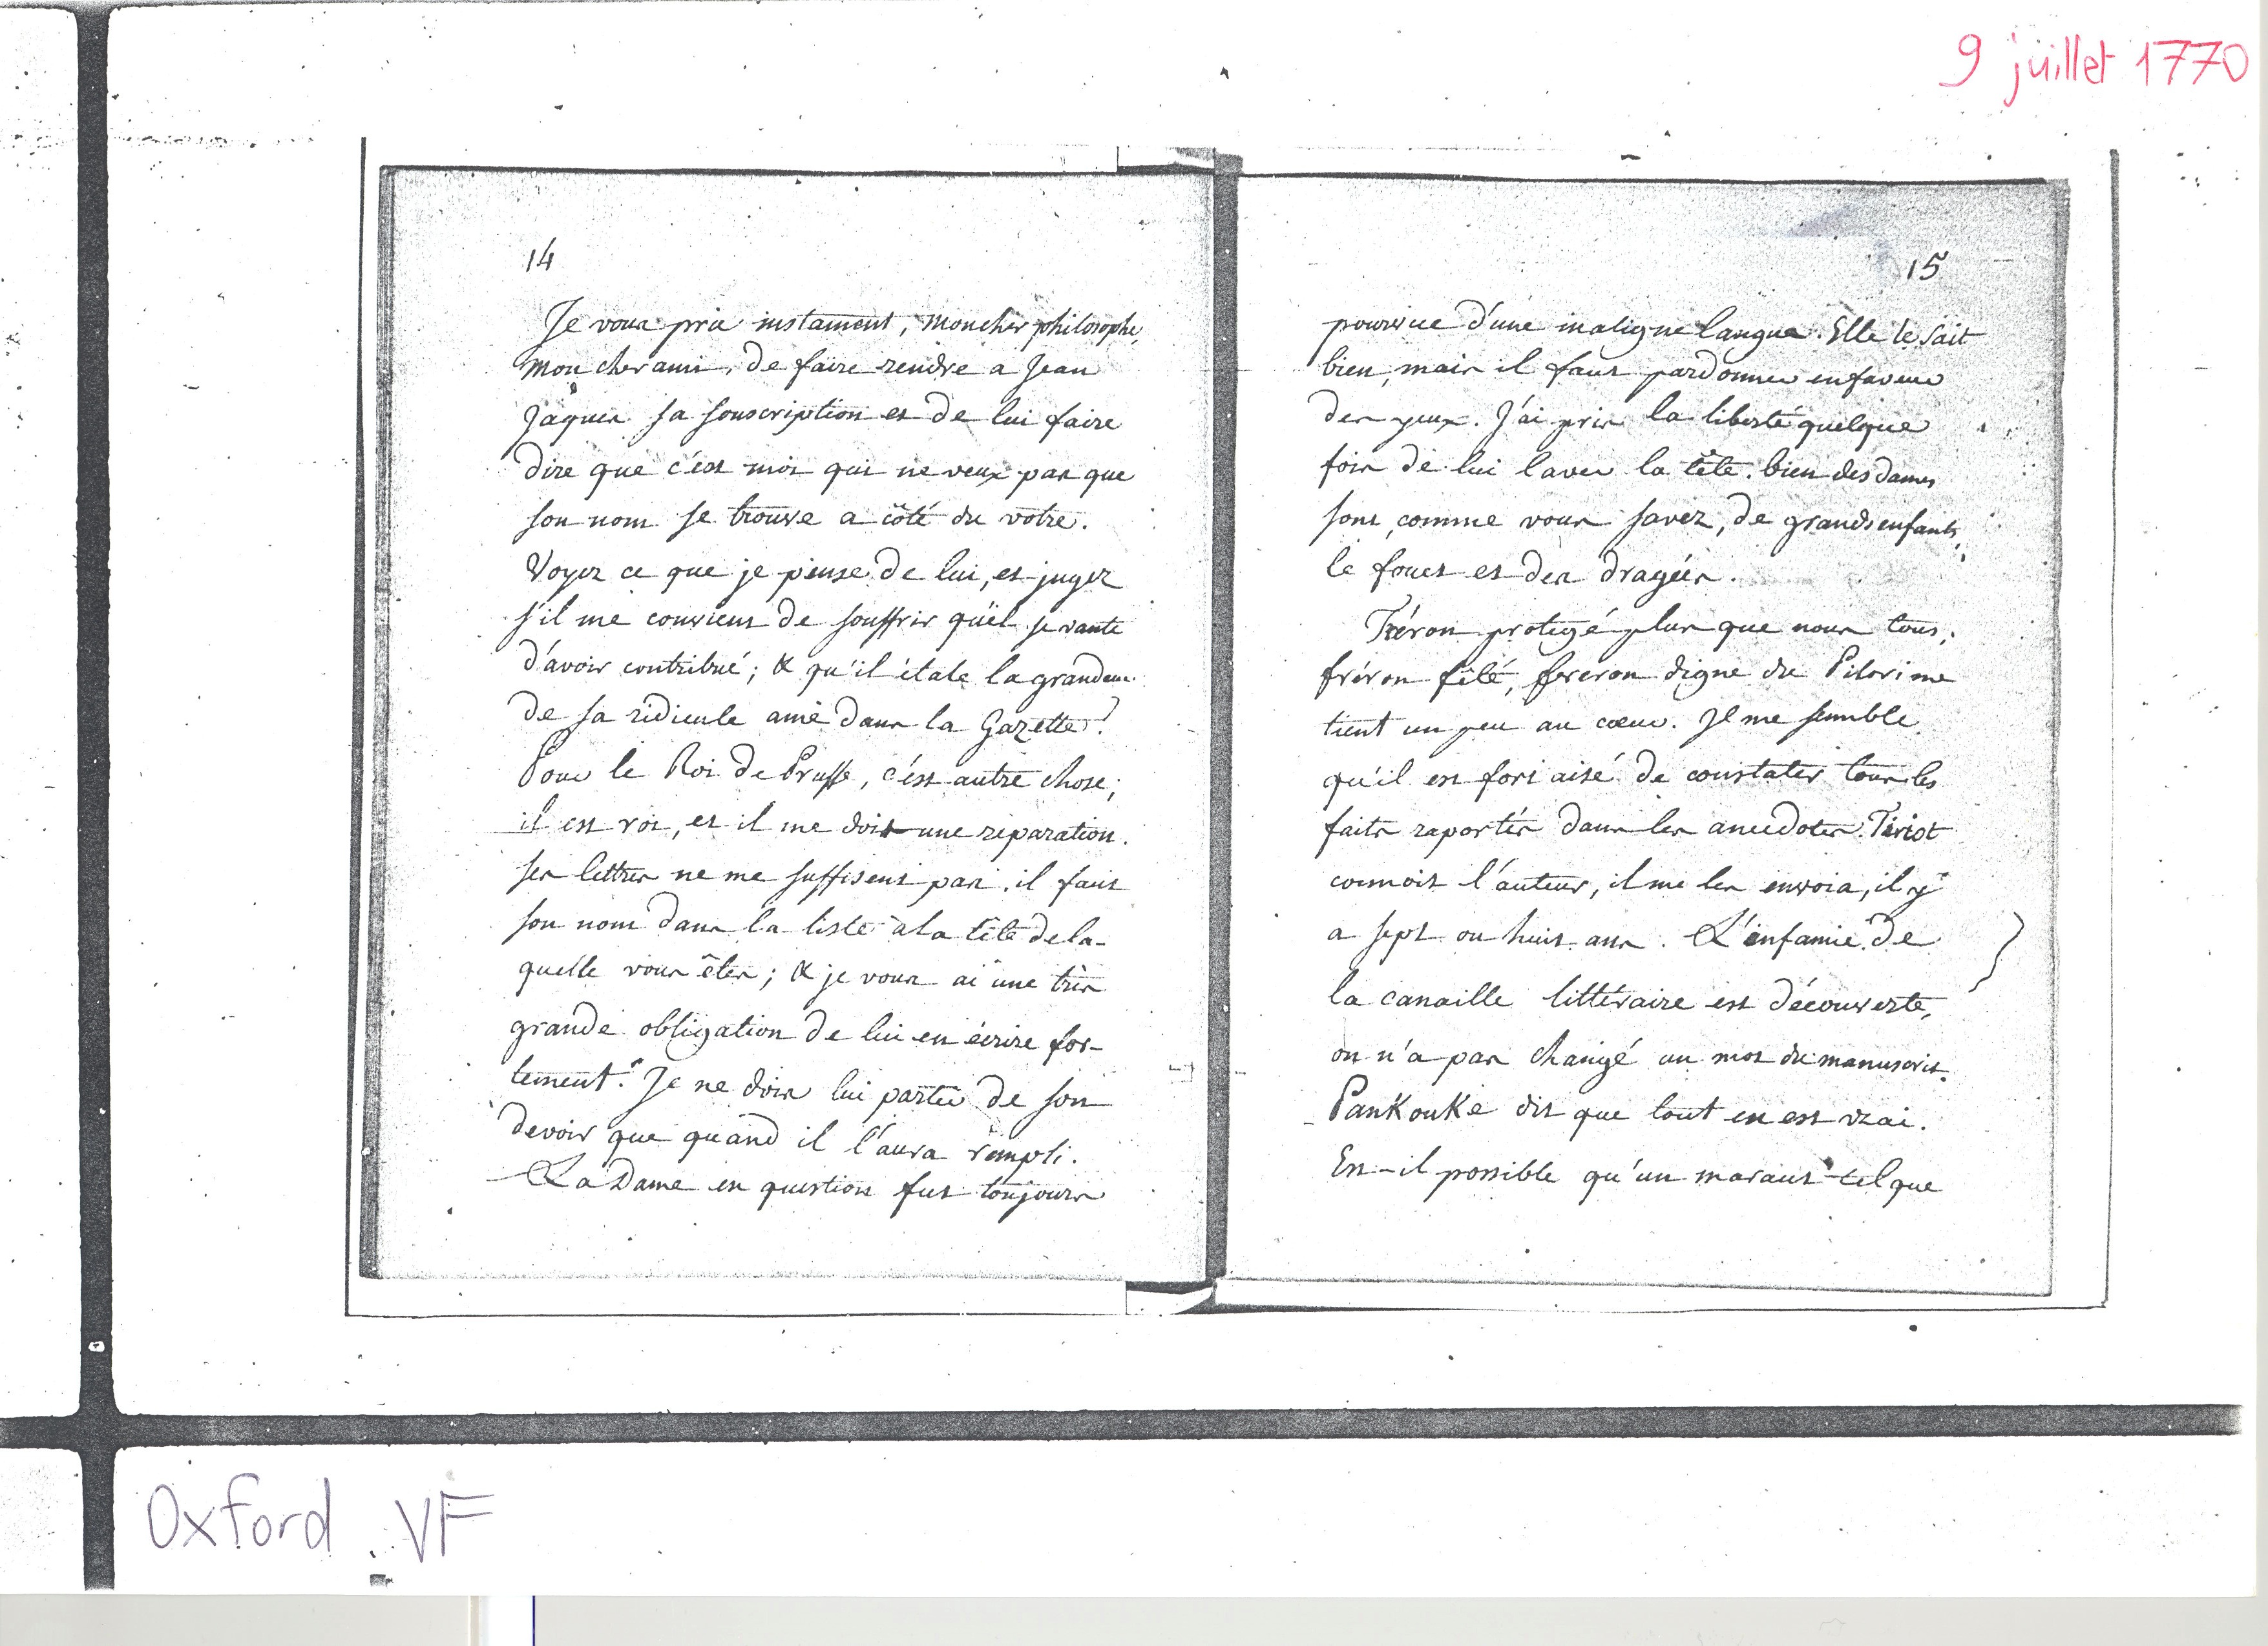 9 juillet 1770
14
Je vous prie instament, mon cher philosophe,
Mon cher ami, de faire rendre a Jean
Jaques sa souscription et de lui faire
dire que c'est moi qui ne veux pas que
son nom se trouve a côté du votre.
Voyez ce que je pense de lui, et jugez
s'il me convient de souffrir qu'il se vante
d'avoir contribué; & qu'il étale la grandeur
de sa ridicule ame dans la Gazette?
Pour le Roi de Prusse, c'est autre chose;
il est roi, et il me doit une réparation.
ses lettres ne me suffisent pas. il faut
son nom dans la liste à la tête de la-
quelle vous êtes; & je vous ai une très
grande obligation de lui en écrire for-
tement. Je ne dois lui parler de son
devoir que quand il l'aura rempli.
La Dame en question fut toujours
15
pourvue d'une maligne langue. Elle le sait
bien, mais il faut pardonner en faveur
des yeux. J'ai pris la liberté quelque
fois de lui laver la tête. bien des dames
sont, comme vous savez, de grands enfants,
le fouet et des dragées.
Fréron protegé plus que nous tous,
fréron fêté, freron digne du Pilori me
tient un peu au coeur. Il me semble
qu'il est fort aisé de constater tous les
faits raportés dans les anecdotes. Tiriot
connoit l'auteur, il me les envoia, il y
a sept ou huit ans. L'infamie de
la canaille littéraire est découverte,
on n'a pas changé un mot du manuscrit.
PanKouKe dit que tout en est vrai.
Est-il possible qu'un maraut tel que
Oxford VF